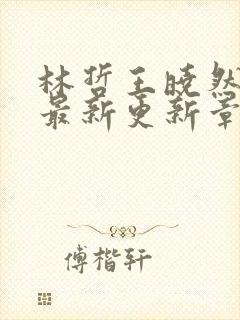 林哲王晓然
最新更新章
傅楷轩